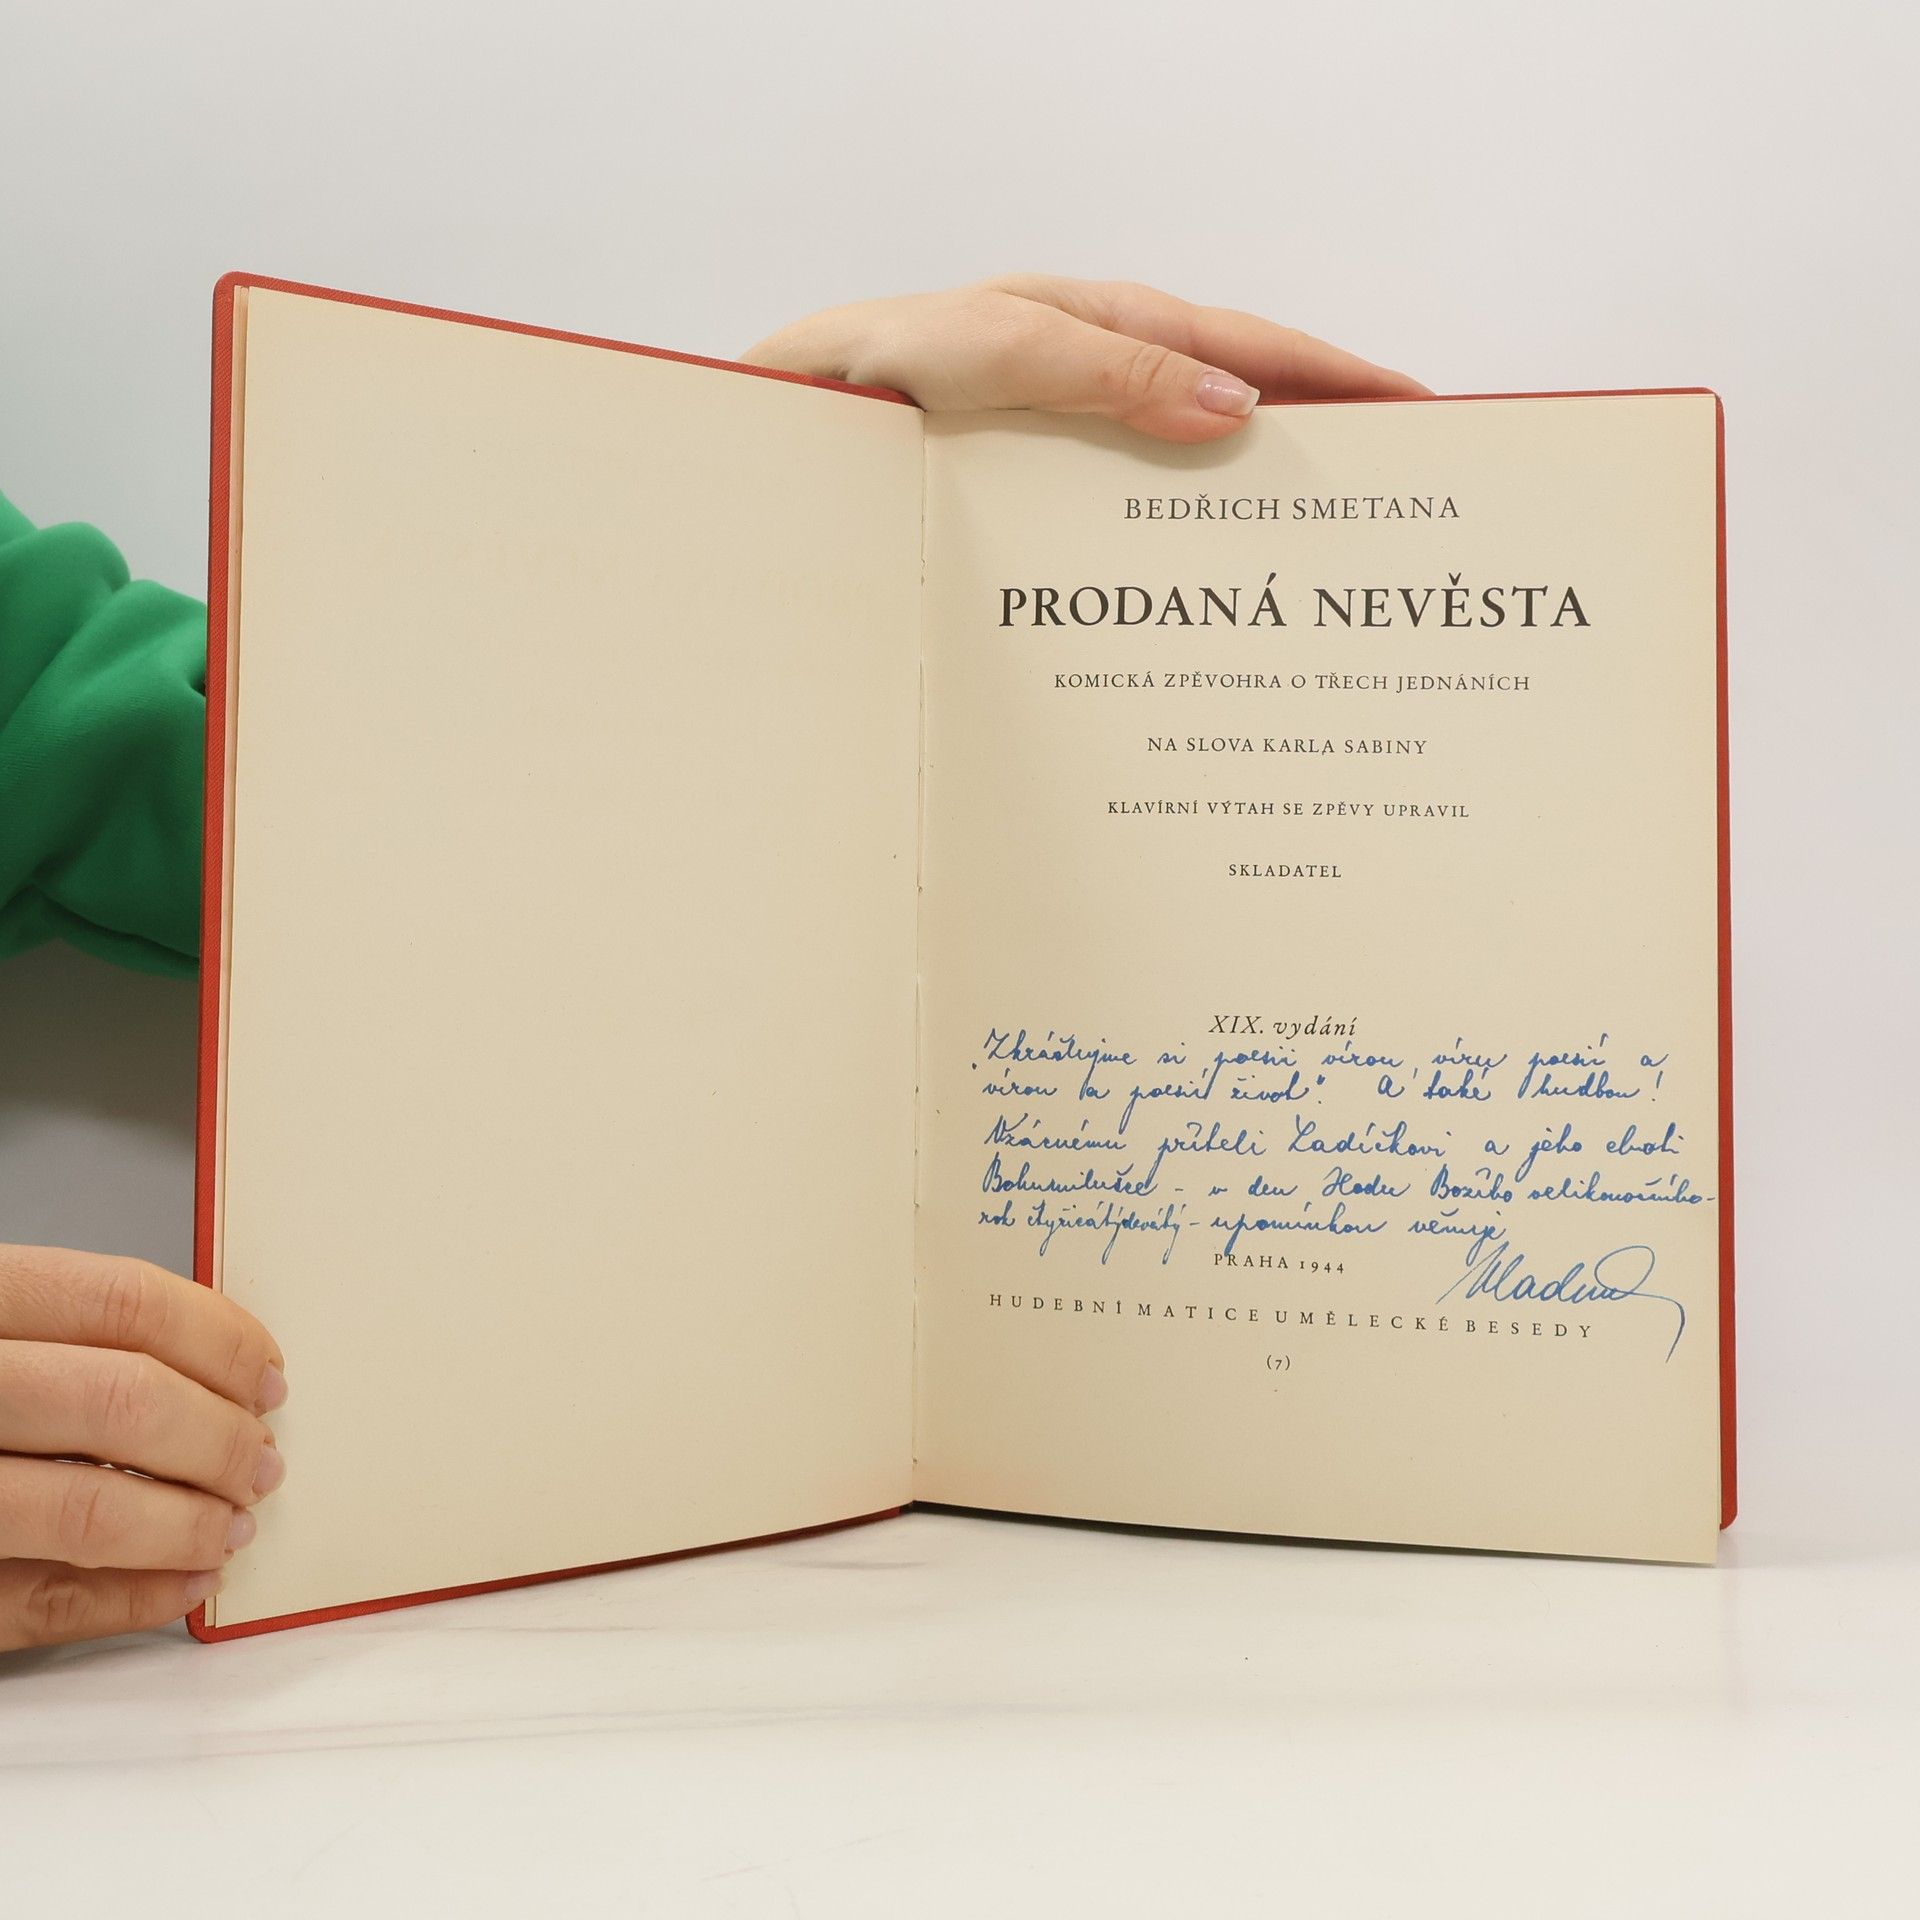 BEDŘICH SMETANA
PRODANÁ NEVĚSTA
KOMICKÁ ZPĚVOHRA O TŘECH JEDNÁNÍCH
NA SLOVA KARLA SABINY
KLAVÍRNÍ VÝTAH SE ZPĚVY UPRAVIL
SKLADATEL
XIX. vydání
„Zkrášlujme si poesii vírou, víru poesií a
vírou a poesií život“. A také hudbou!
Vzácnému příteli Ladíčkovi a jeho choti
Bohumilušce - v den Hodu Božího velikonočního-
rok čtyřicátýdevátý - upomínkou věnuje
PRAHA 1944
HUDEBNÍ MATICE UMĚLECKÉ BESEDY
(7)